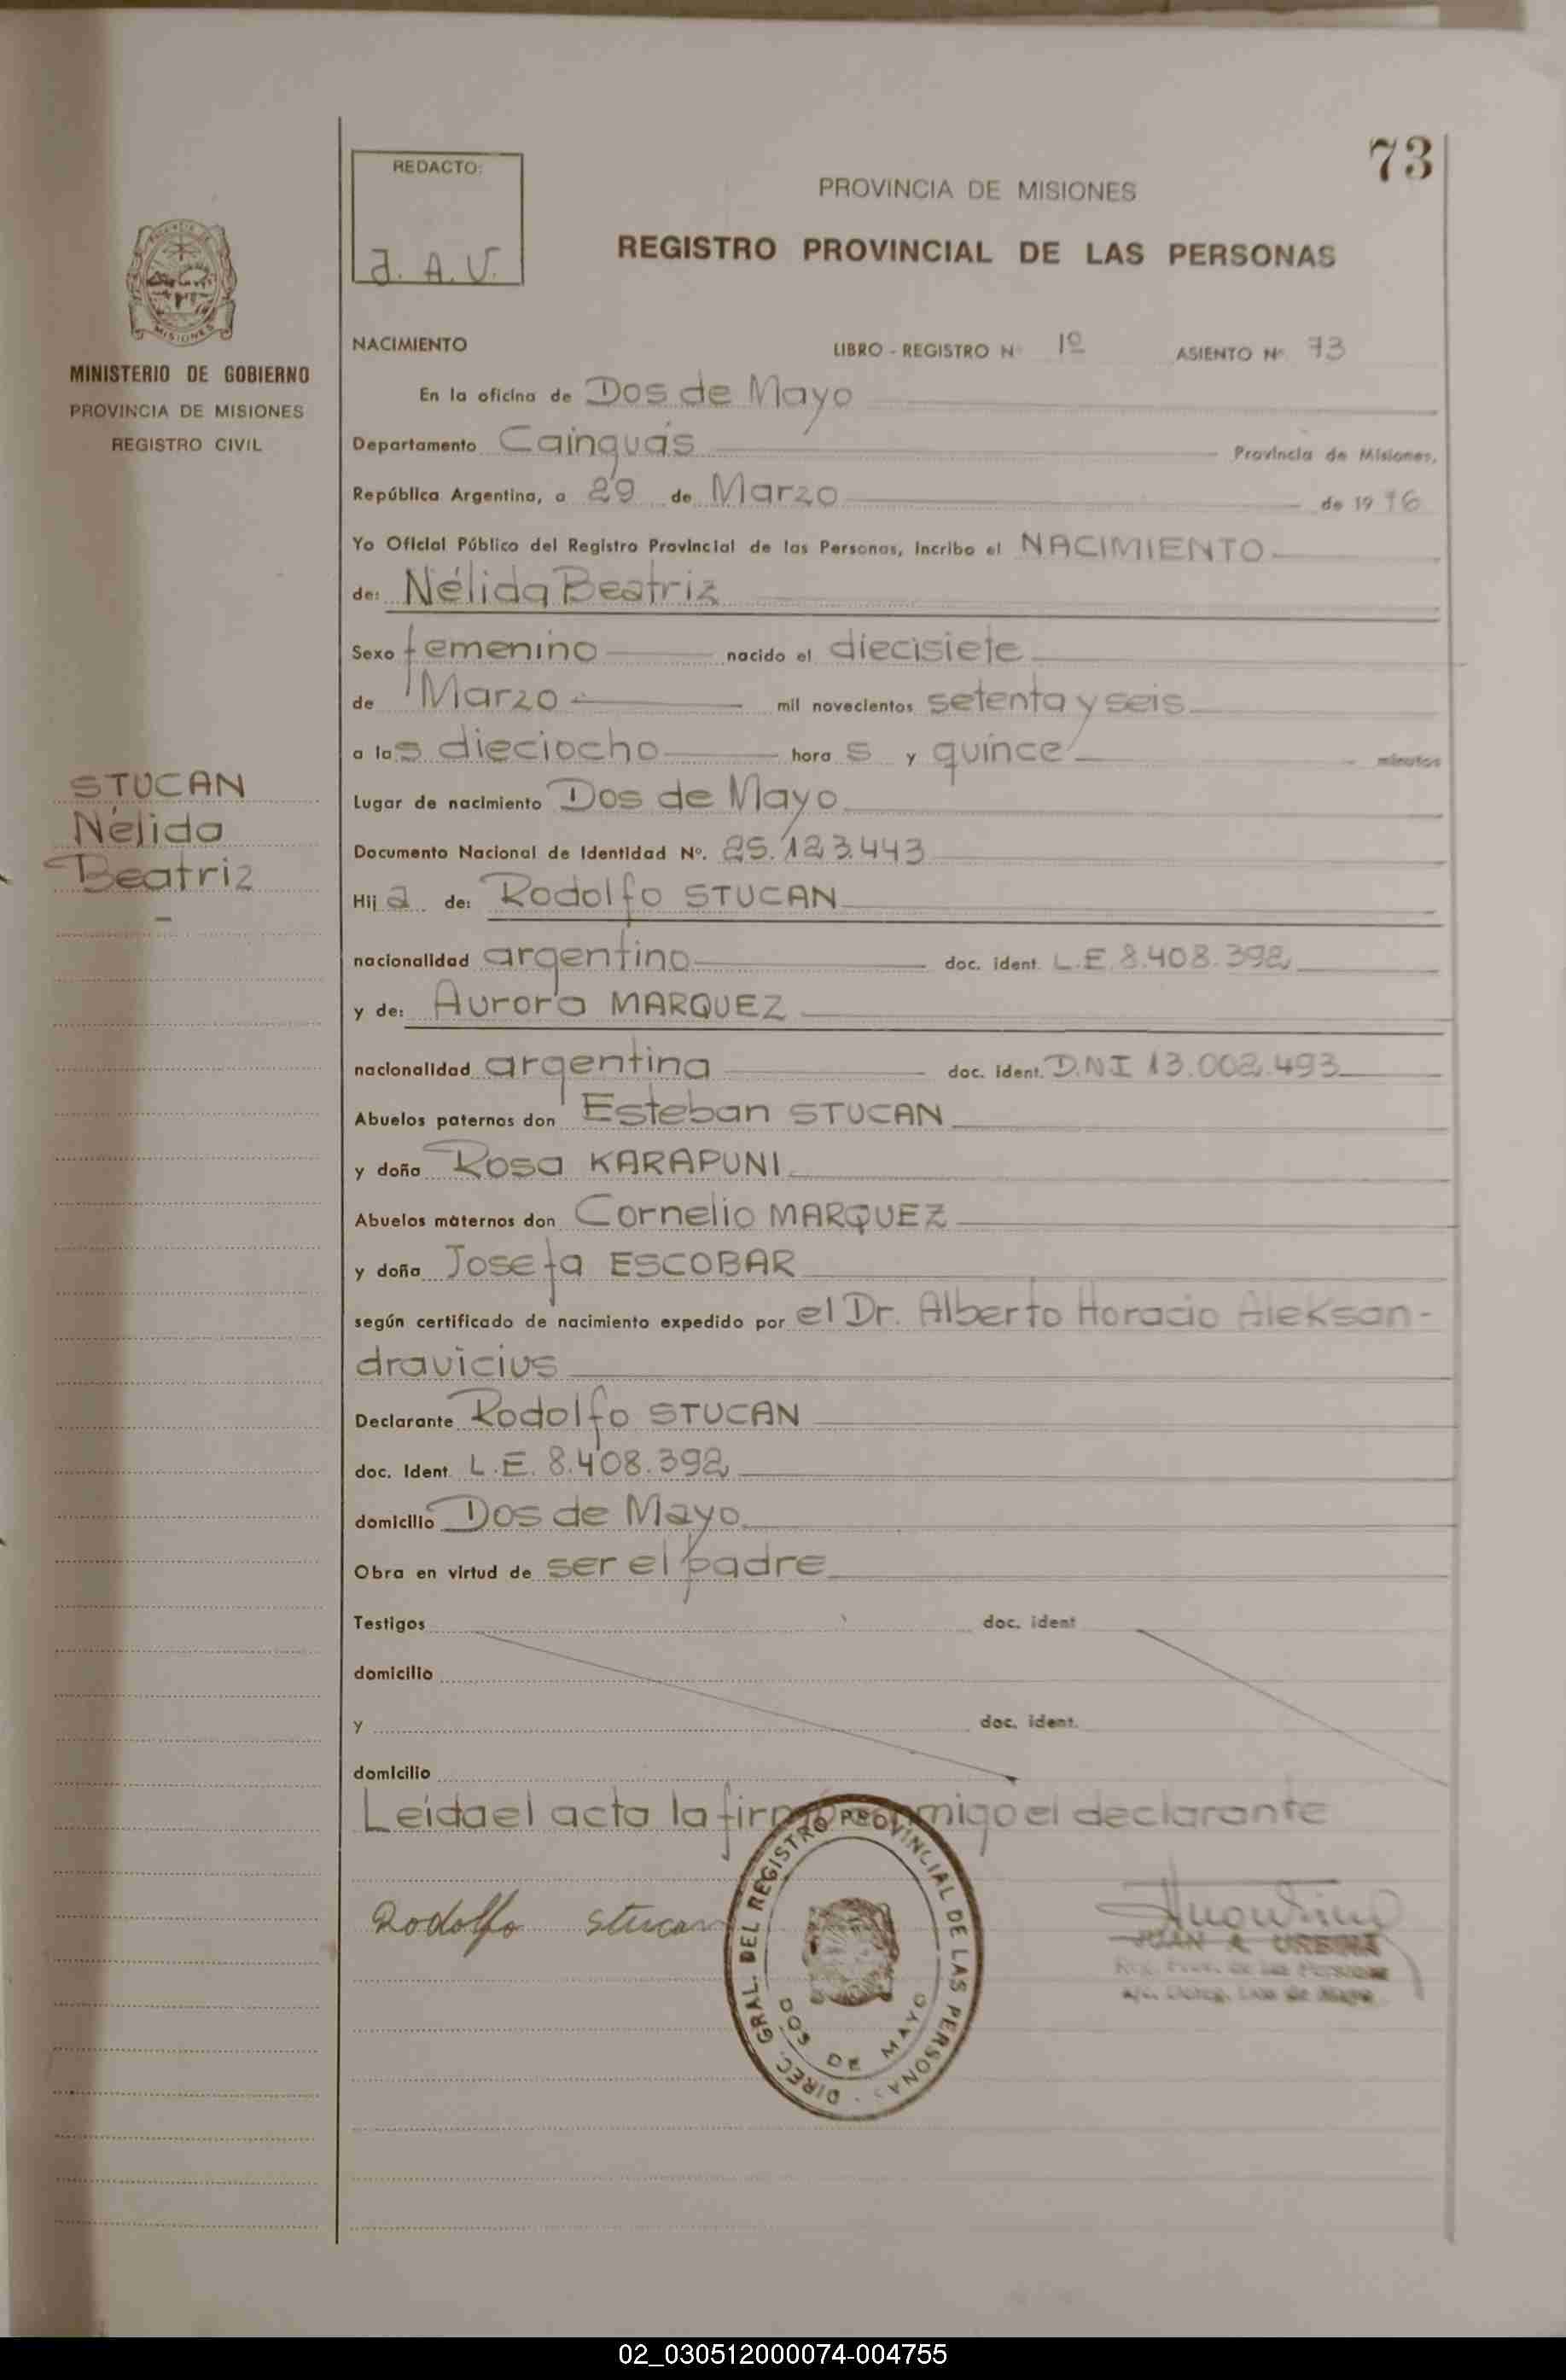 73
REDACTO:
J. A. V.
PROVINCIA DE MISIONES
REGISTRO PROVINCIAL DE LAS PERSONAS
MISIONES
MINISTERIO DE GOBIERNO
PROVINCIA DE MISIONES
REGISTRO CIVIL
STUCAN
Nélida
Beatriz
NACIMIENTO LIBRO - REGISTRO Nº 1º ASIENTO Nº 73
En la oficina de Dos de Mayo
Departamento Cainguás Provincia de Misiones,
República Argentina, a 29 de Marzo de 19 76
Yo Oficial Público del Registro Provincial de las Personas, incribo el NACIMIENTO
de: Nélida Beatriz
Sexo femenino nacido el diecisiete
de Marzo mil novecientos setenta y seis
a las dieciocho hora s y quince minutos
Lugar de nacimiento Dos de Mayo
Documento Nacional de Identidad Nº. 25.123.443
Hij a de: Rodolfo STUCAN
nacionalidad argentino doc. ident. L.E 8.408.392
y de: Aurora MARQUEZ
nacionalidad argentina doc. ident. D.N.I 13.002.493
Abuelos paternos don Esteban STUCAN
y doña Rosa KARAPUNI
Abuelos maternos don Cornelio MARQUEZ
y doña Josefa ESCOBAR
según certificado de nacimiento expedido por el Dr. Alberto Horacio Aleksan-
dravicius
Declarante Rodolfo STUCAN
doc. Ident. L.E. 8.408.392
domicilio Dos de Mayo
Obra en virtud de ser el padre
Testigos doc. ident
domicilio
y doc. ident.
domicilio
Leída el acta la firmó conmigo el declarante
Rodolfo Stucan
DIREC. GRAL. DEL REGISTRO PROVINCIAL DE LAS PERSONAS
DOS DE MAYO
JUAN A URBINA
Reg. Prov. de las Personas
a/c. Deleg. Dos de Mayo
02_030512000074-004755